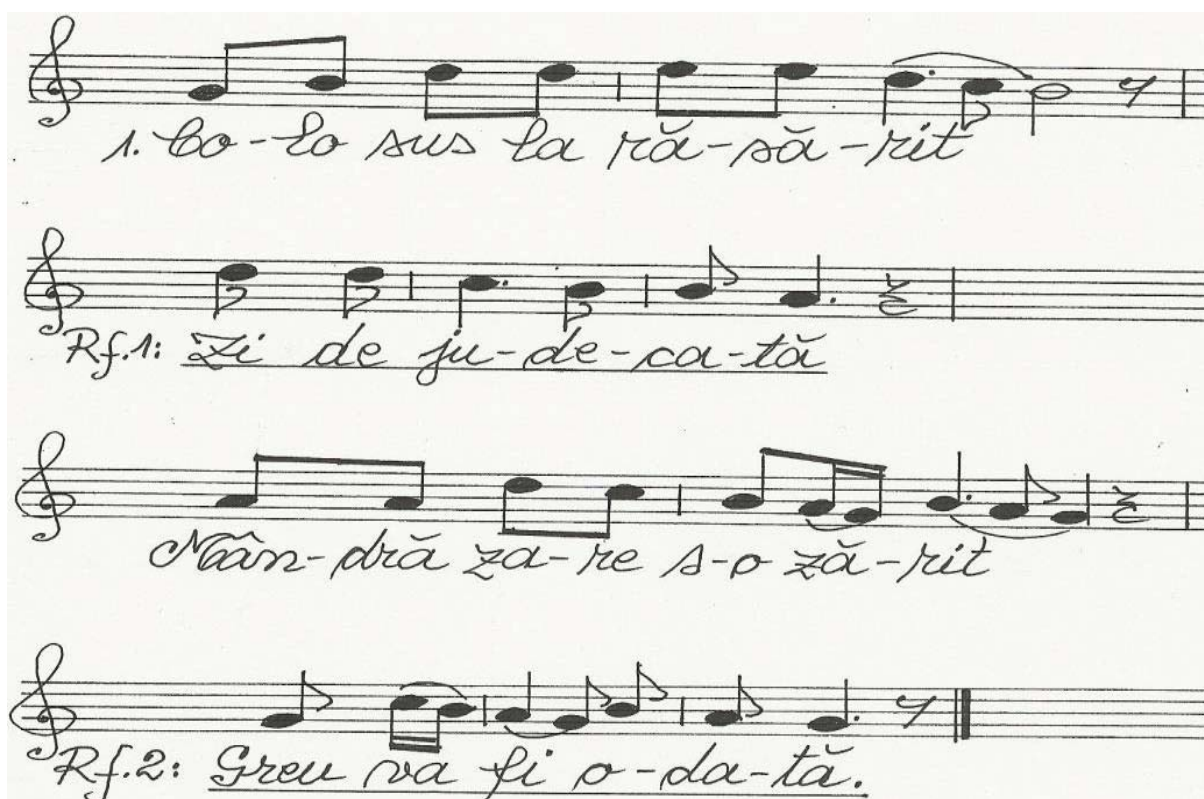 1. Co-lo sus la ră-să-rit
Rf.1: Zi de ju-de-ca-tă
Mân-dră za-re s-o ză-rit
Rf.2: Greu va fi o-da-tă.